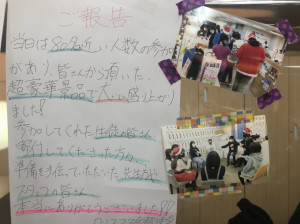 ご報告
当日は80名近い人数の参加
があり、皆さんから頂いた、
超豪華景品で大いに盛り上がり
ました!
参加してくれた生徒の皆さん
寄付してくださった方々
準備を手伝っていただいた先生方と
スタッフの皆さん
本当にありがとうございました!!